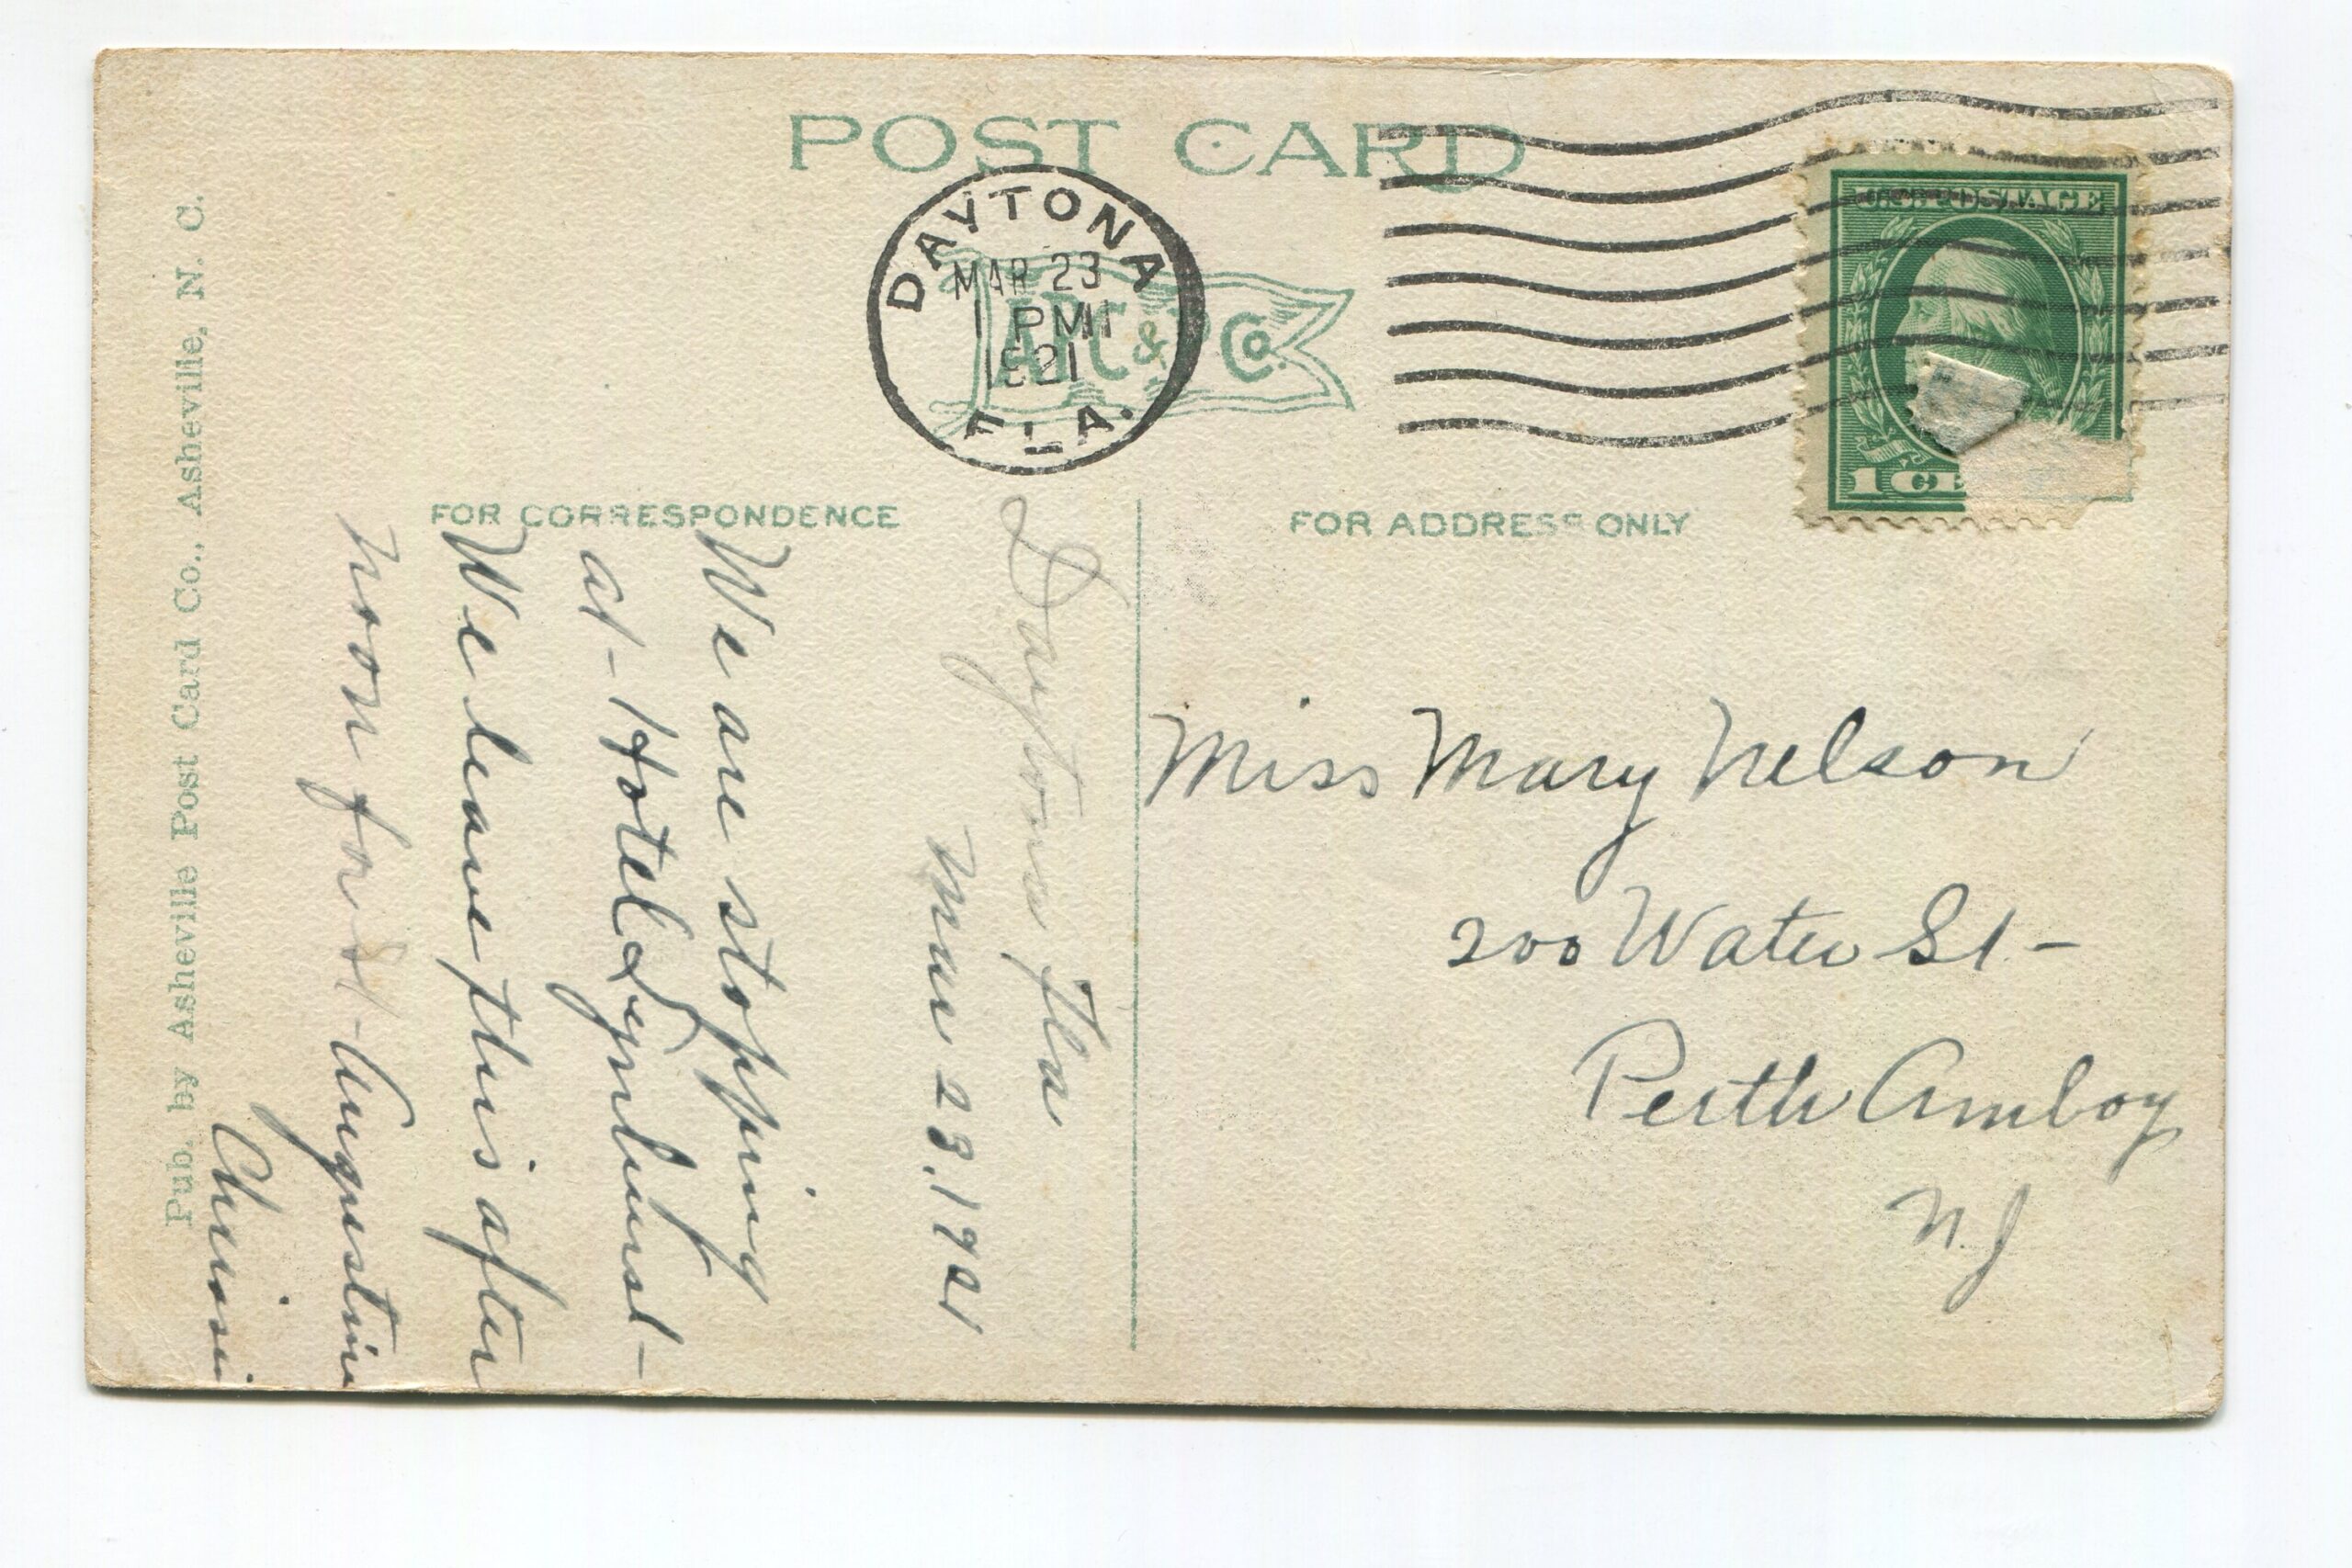 POST CARD
DAYTONA
MAR 23
1 PM
1921
FLA.
APC & P Co.
U.S. POSTAGE
1 CE
FOR CORRESPONDENCE
FOR ADDRESS ONLY
Daytona Fla
Mar 23, 1921
We are stopping
at Hotel Lyndhurst
We leave this after
noon for St Augustine
Miss Mary Nelson
200 Water St
Perth Amboy
N.J
Pub. by Asheville Post Card Co., Asheville, N. C.